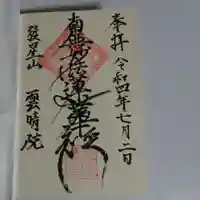 奉拝 令和四年七月二日
南無妙法蓮華経
發星山
雲晴院